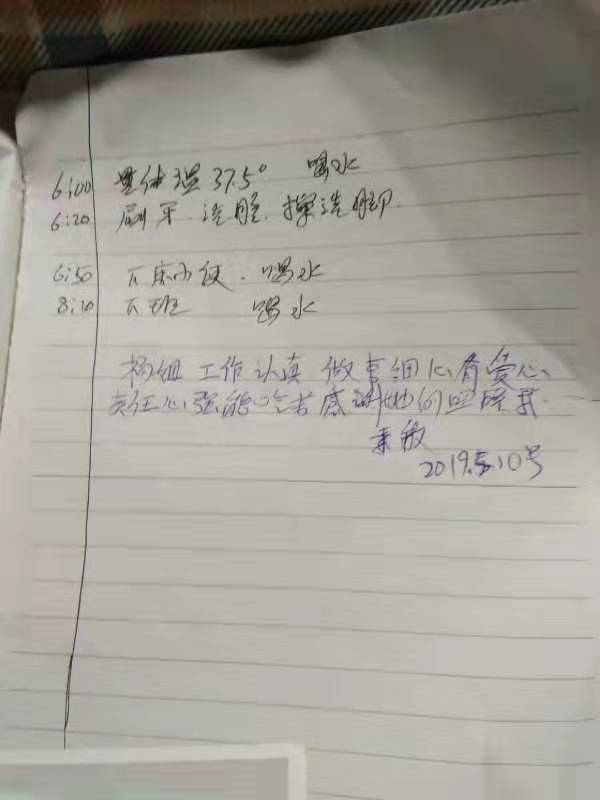 6:00 量体温 37.5° 喝水
6:20 刷牙.洗脸.擦洗脚.
6:50 下床小便.喝水
8:10 下班 喝水
杨姐 工作认真 做事细心有爱心、
责任心强能吃苦感谢她的照顾
敏
2019.5.10号